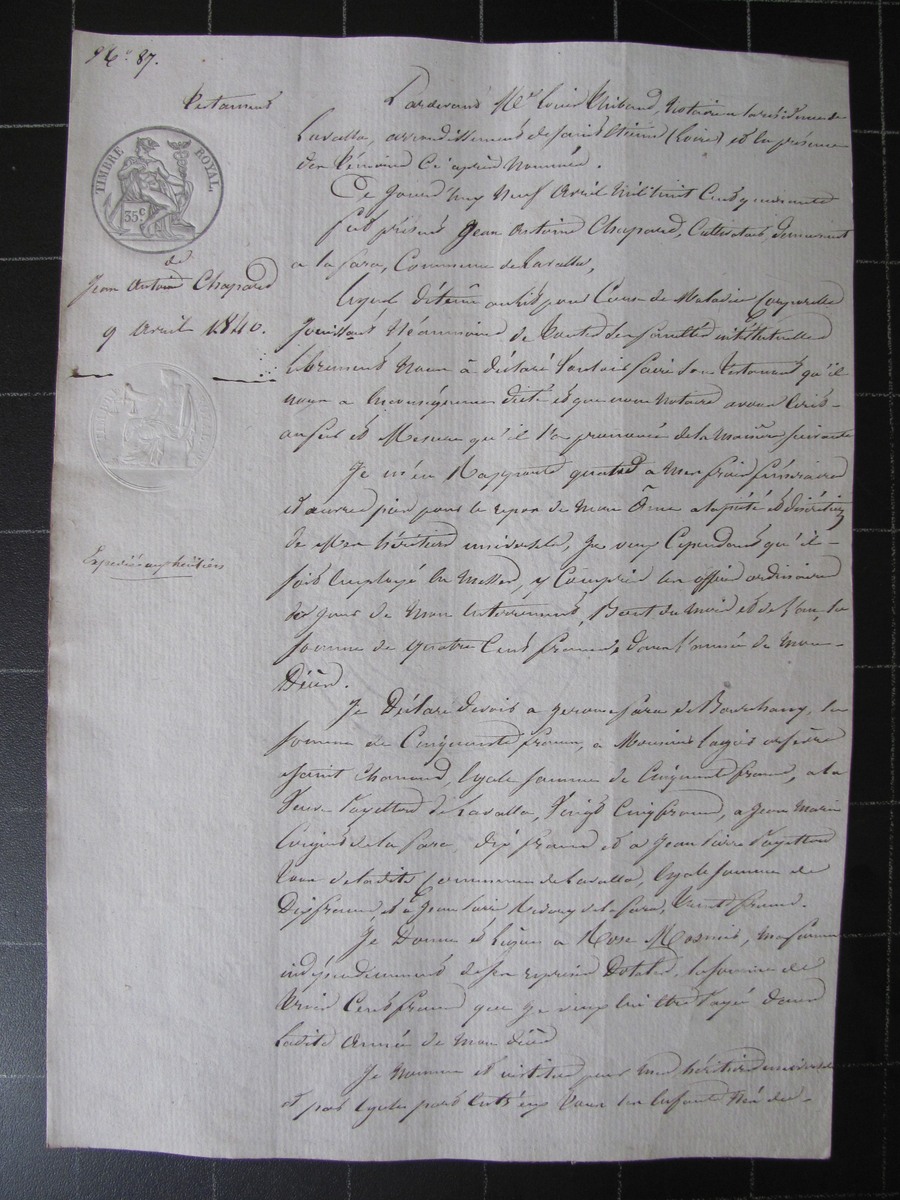 N.º 87.
Testament
TIMBRE ROYAL.
35 c.
de
Jean Antoine Chapard
9 Avril 1840.
Expediée aux héritiers
Pardevant Me Thibaud, Notaire a la résidence de
Lavalla, arrondissement de Saint Etienne (Loire) et en présence
des témoins ci après nommés.
Ce jourd'huy neuf Avril mil huit cent quarante
fut présent Jean Antoine Chapard, Cultivateur, demeurant
a la fara, Commune de Lavalla,
Lequel détenu au lit pour Cause de Maladie Corporelle
Jouissant Néanmoins de toutes ses facultés intellectuelles
librement Nous à déclaré Vouloir faire son testament qu'il
nous a dicté et que nous Notaire avons écris
au fur et Mesure qu'il l'a prononcé de la manière suivante
Je m'en Rapporte quand a mes frais funéraires
et œuvres pies pour le repos de mon âme a la piété et discrétion
de Mes héritiers universels, Je veux Cependant qu'il
soit Employé en Messes, y Compris les offices ordinaires
des jours de Mon Enterrement, Bout du Mois et de l'an, la
somme de quatre Cent francs, dans l'année de Mon
Décès.
Je Déclare devoir a fara de la
somme de Cinquante francs, a Monsieur
Saint Chamond, Egale somme de Cinquante francs, a la
Veuve Payettand de Lavalla, Vingt Cinq francs, a Jean Marie
de la fara, Dix francs et a Jean Pierre Payettand
tous de ladite Commune de Lavalla, Egale somme de
Dix francs, et a Jean de la fara, francs.
Je Donne et Lègue a Rose Mosnier, ma femme
indépendamment de ses reprises Dotales, la somme de
Trois Cent francs que je veux lui être Payée dans
Ladite Année de Mon décès
Je Nomme et institue pour mes héritiers universels
et par Egales parts Entr'eux tous les Enfants Nés de